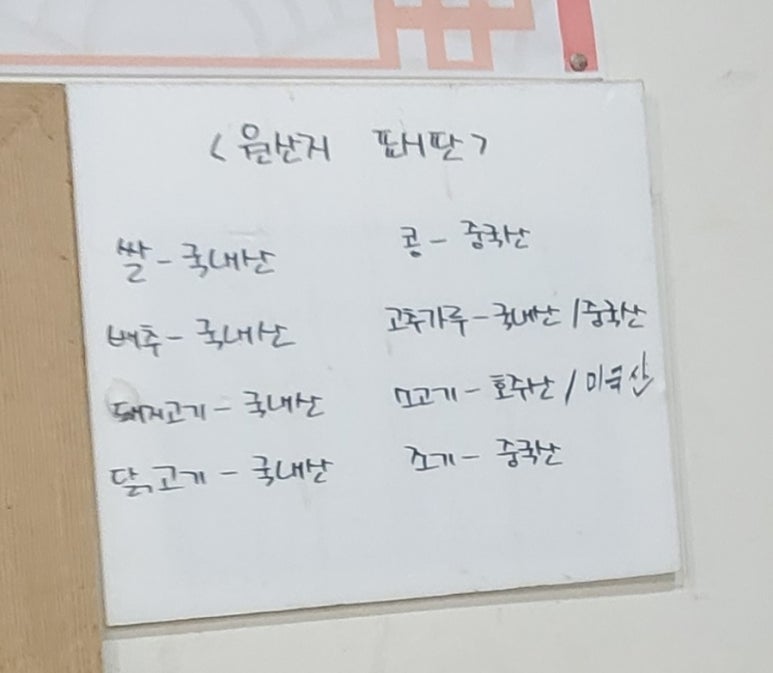 <원산지 표시판>
쌀 - 국내산
배추 - 국내산
돼지고기 - 국내산
닭고기 - 국내산
콩 - 중국산
고추가루 - 국내산 / 중국산
소고기 - 호주산 / 미국산
조기 - 중국산